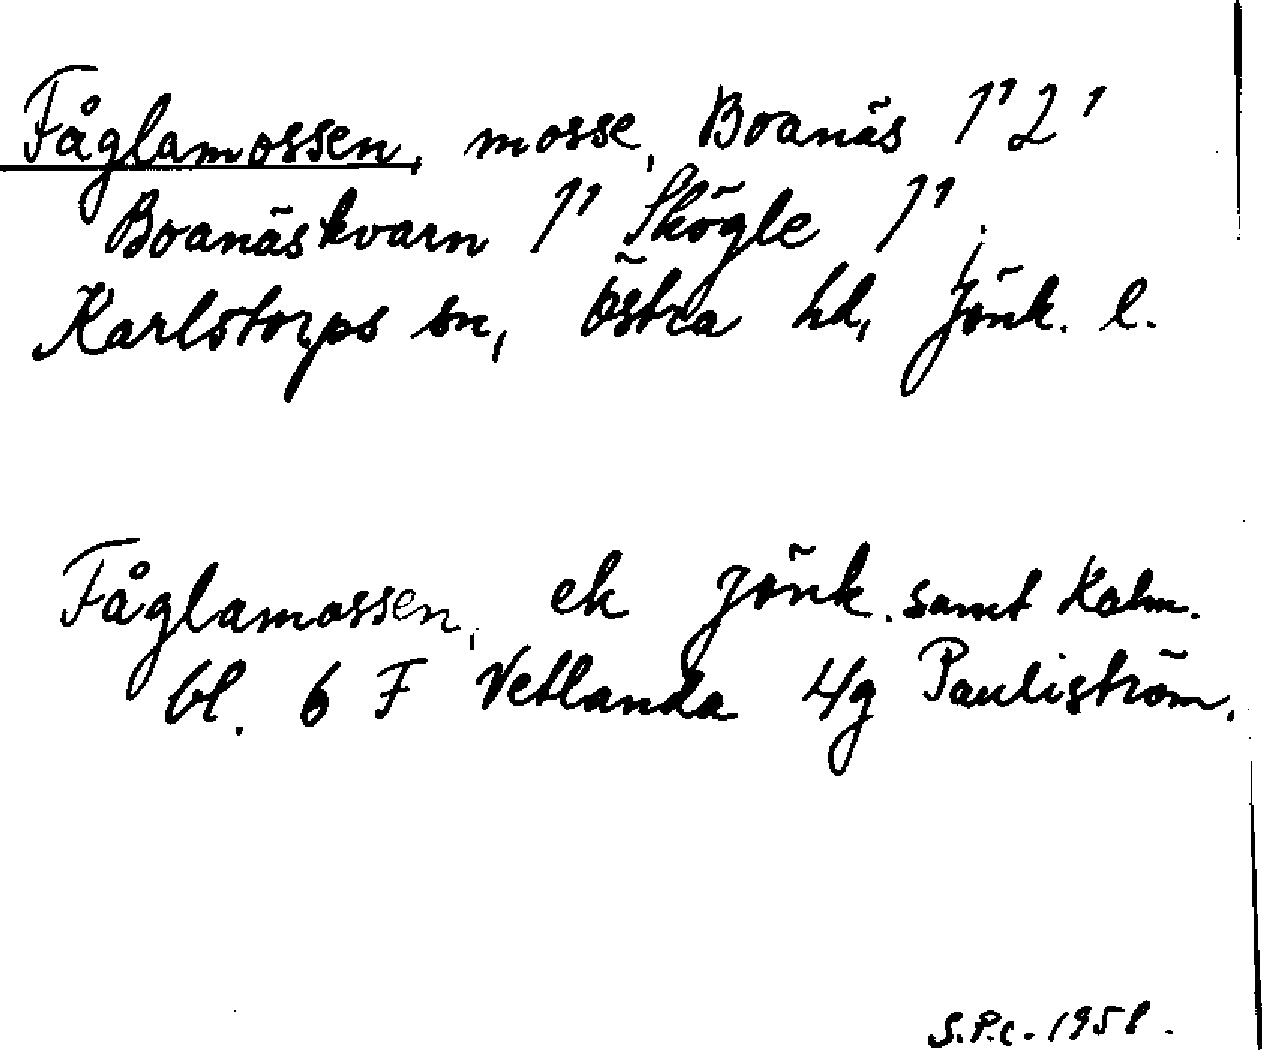 Fåglamossen, mosse, Boanäs 1' 2'
Boanäskvarn 1' Skögle 1',
Karlstorps sn, östra hd, Jönk. l.
Fåglamossen, ek Jönk. samt Kalm.
bl. 6 F Vetlanda 4g Pauliström.
S.P.C. 1958.